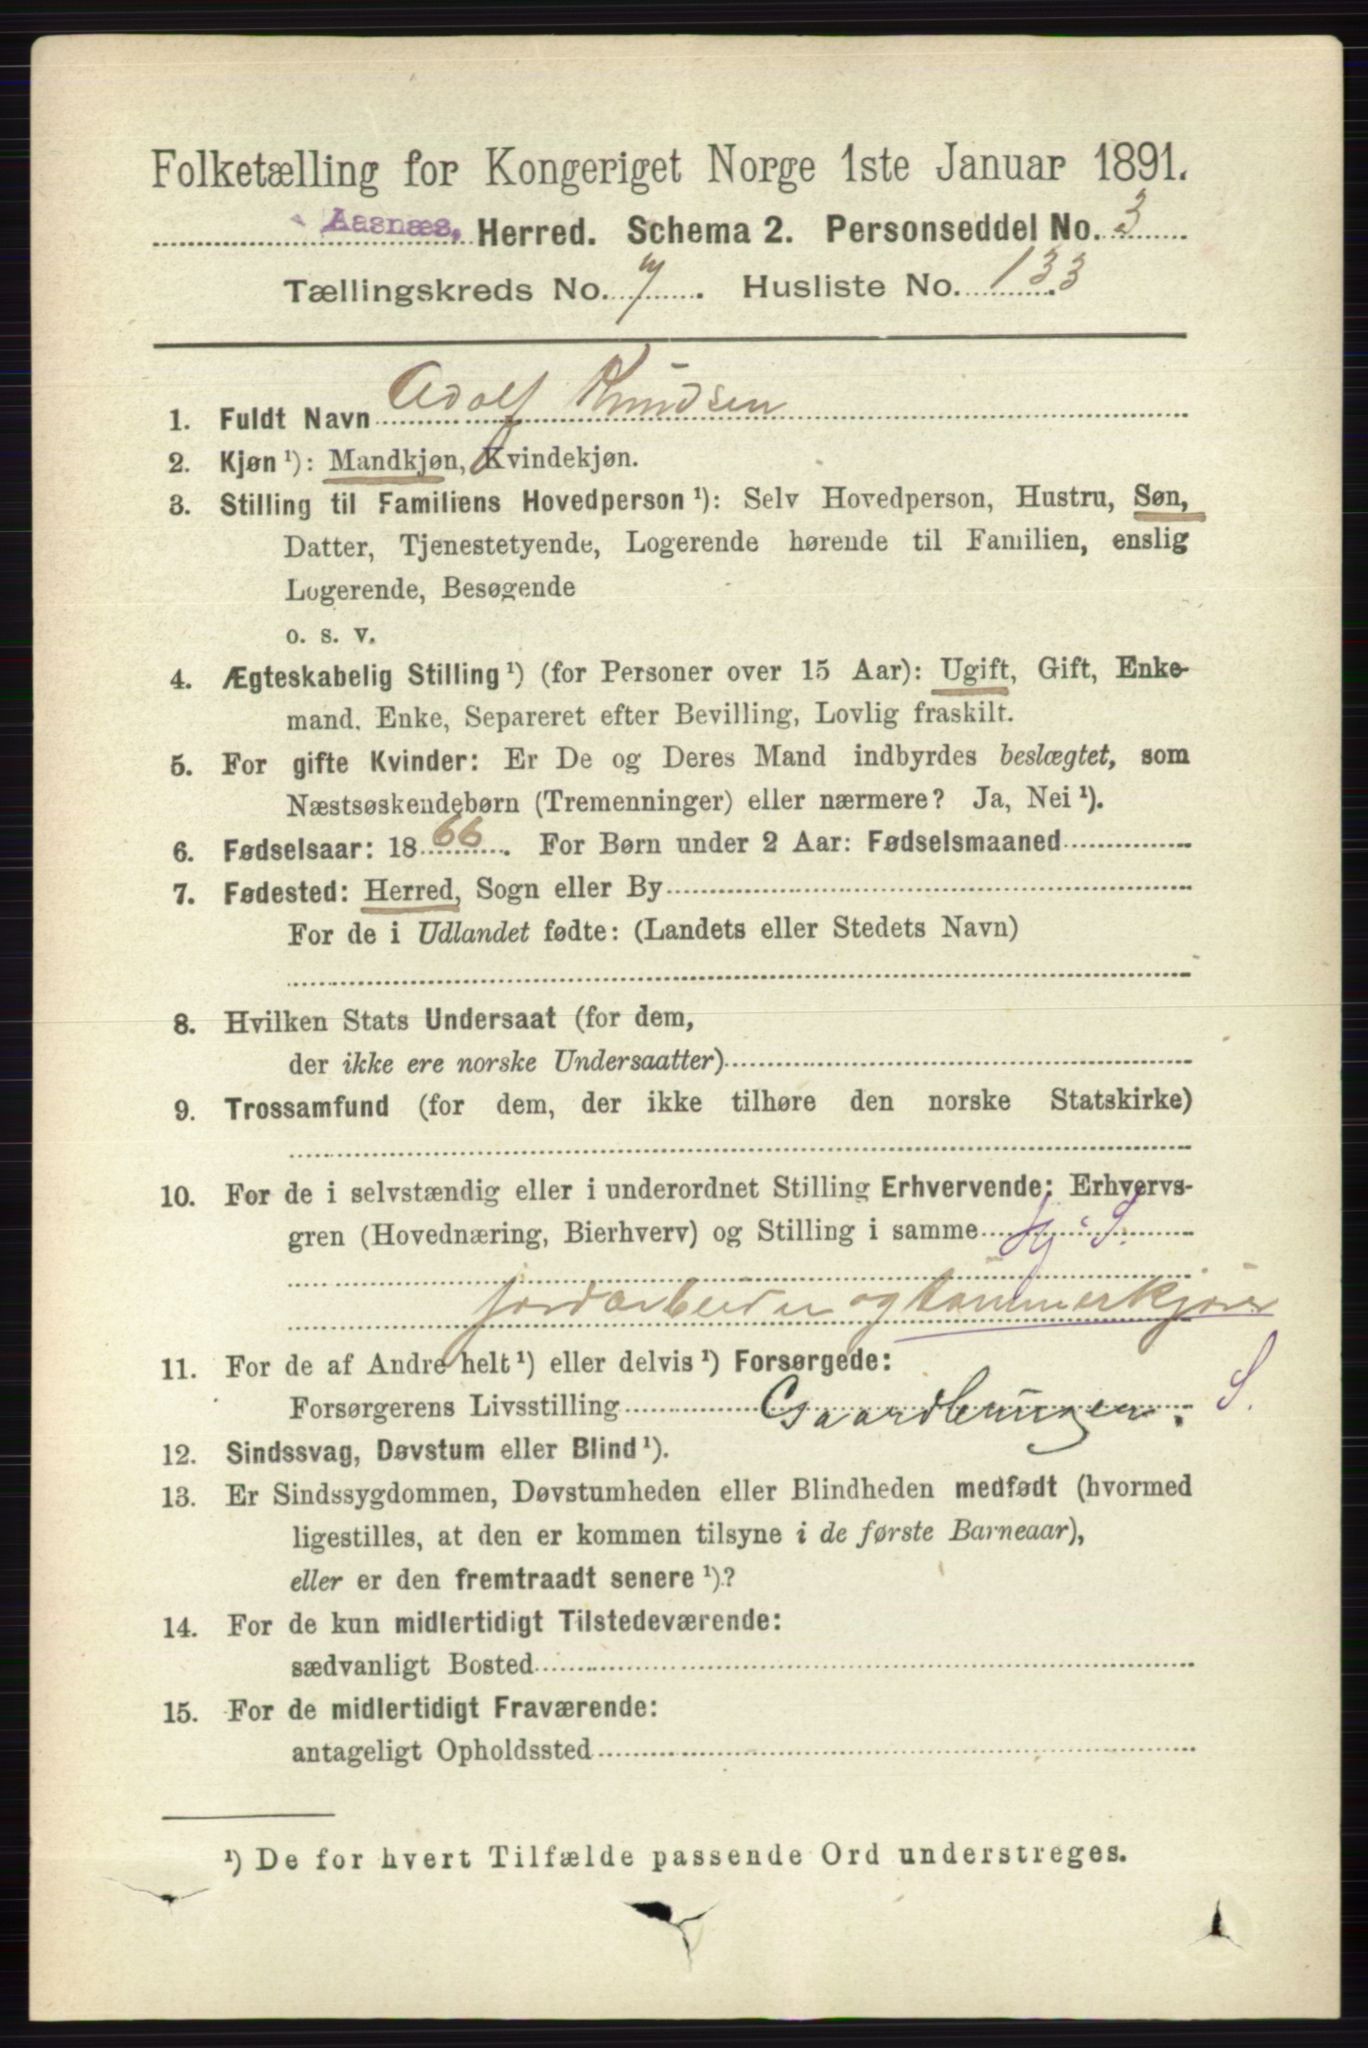 Folketælling for Kongeriget Norge 1ste Januar 1891.
Aasnæs, Herred. Schema 2. Personseddel No. 3
Tællingskreds No. 7. Husliste No. 133
1. Fuldt Navn Adolf Knudsen
2. Kjøn¹): Mandkjøn, Kvindekjøn.
3. Stilling til Familiens Hovedperson¹): Selv Hovedperson, Hustru, Søn,
Datter, Tjenestetyende, Logerende hørende til Familien, enslig
Logerende, Besøgende
o. s. v.
4. Ægteskabelig Stilling¹) (for Personer over 15 Aar): Ugift, Gift, Enke-
mand, Enke, Separeret efter Bevilling, Lovlig fraskilt.
5. For gifte Kvinder: Er De og Deres Mand indbyrdes beslægtet, som
Næstsøskendebørn (Tremenninger) eller nærmere? Ja, Nei¹).
6. Fødselsaar: 1866. For Børn under 2 Aar: Fødselsmaaned
7. Fødested: Herred, Sogn eller By
For de i Udlandet fødte: (Landets eller Stedets Navn)
8. Hvilken Stats Undersaat (for dem,
der ikke ere norske Undersaatter)
9. Trossamfund (for dem, der ikke tilhøre den norske Statskirke)
10. For de i selvstændig eller i underordnet Stilling Erhvervende: Erhvervs-
gren (Hovednæring, Bierhverv) og Stilling i samme S.
jordarbeider og tømmerkjører
11. For de af Andre helt¹) eller delvis¹) Forsørgede:
Forsørgerens Livsstilling Gaardbruger. S.
12. Sindssvag, Døvstum eller Blind¹).
13. Er Sindssygdommen, Døvstumheden eller Blindheden medfødt (hvormed
ligestilles, at den er kommen tilsyne i de første Barneaar),
eller er den fremtraadt senere¹)?
14. For de kun midlertidigt Tilstedeværende:
sædvanligt Bosted
15. For de midlertidigt Fraværende:
antageligt Opholdssted
¹) De for hvert Tilfælde passende Ord understreges.